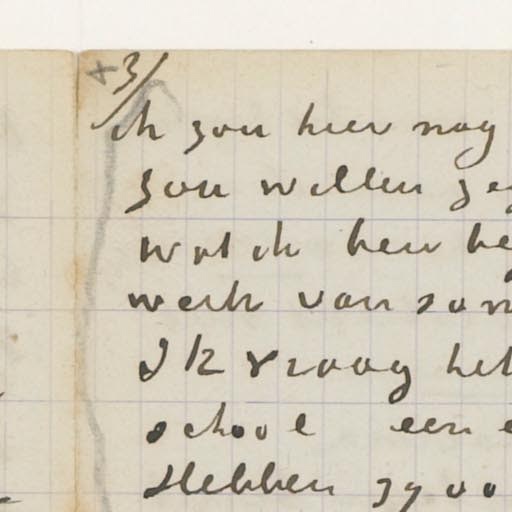 3/
ik zou hier nog
zou willen zeg
wat ik hier he
werk van som
Ik vraag het
school een
Hebben zy oo